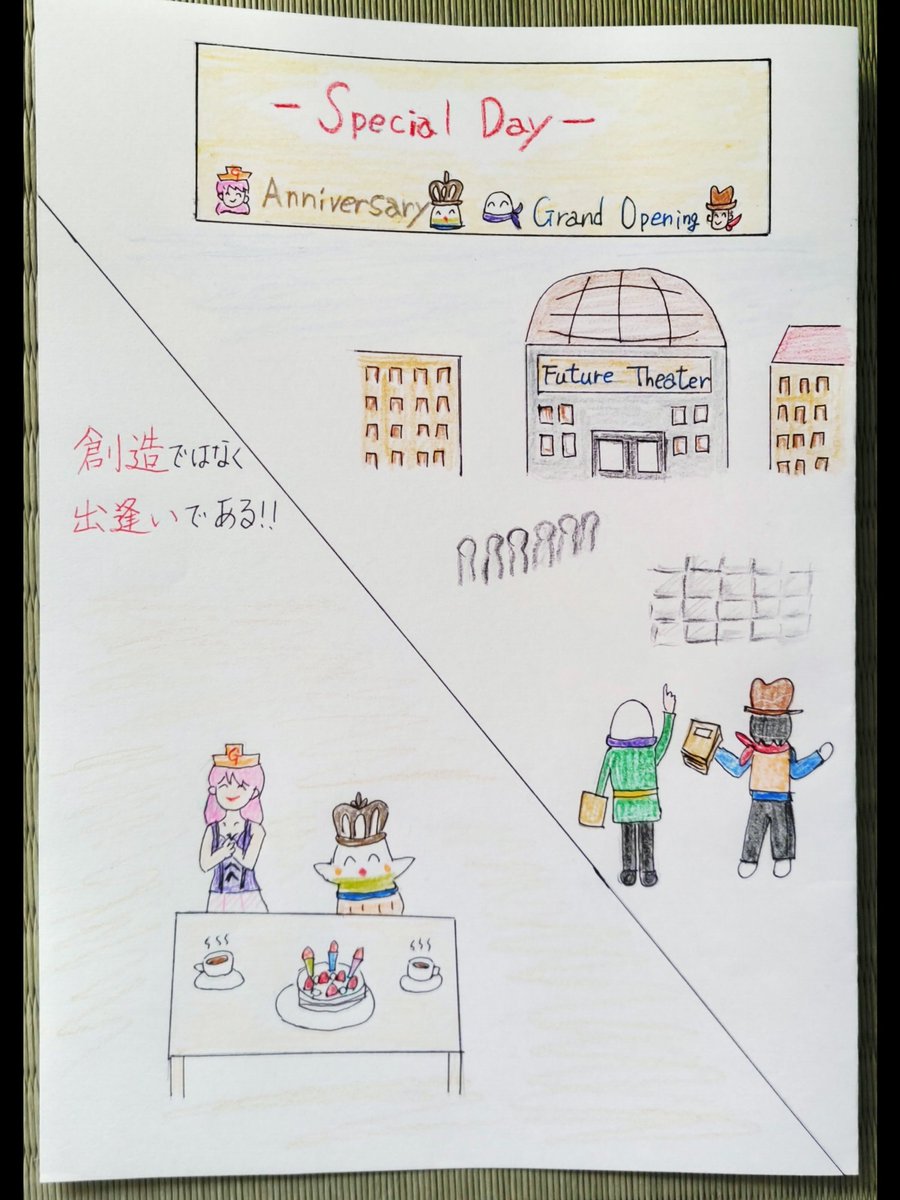 - Special Day -
Anniversary Grand Opening
Future Theater
創造ではなく
出逢いである!!
G
G